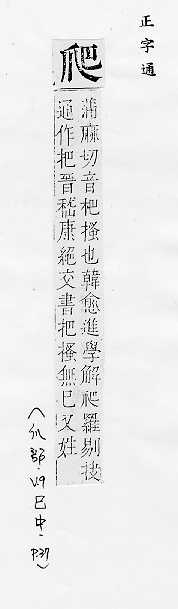 正字通
爬
蒲麻切音杷搔也韓愈進學解爬羅剔抉
通作把晉嵇康絕交書把搔無已又姓
(爪部·巳中·P.37)